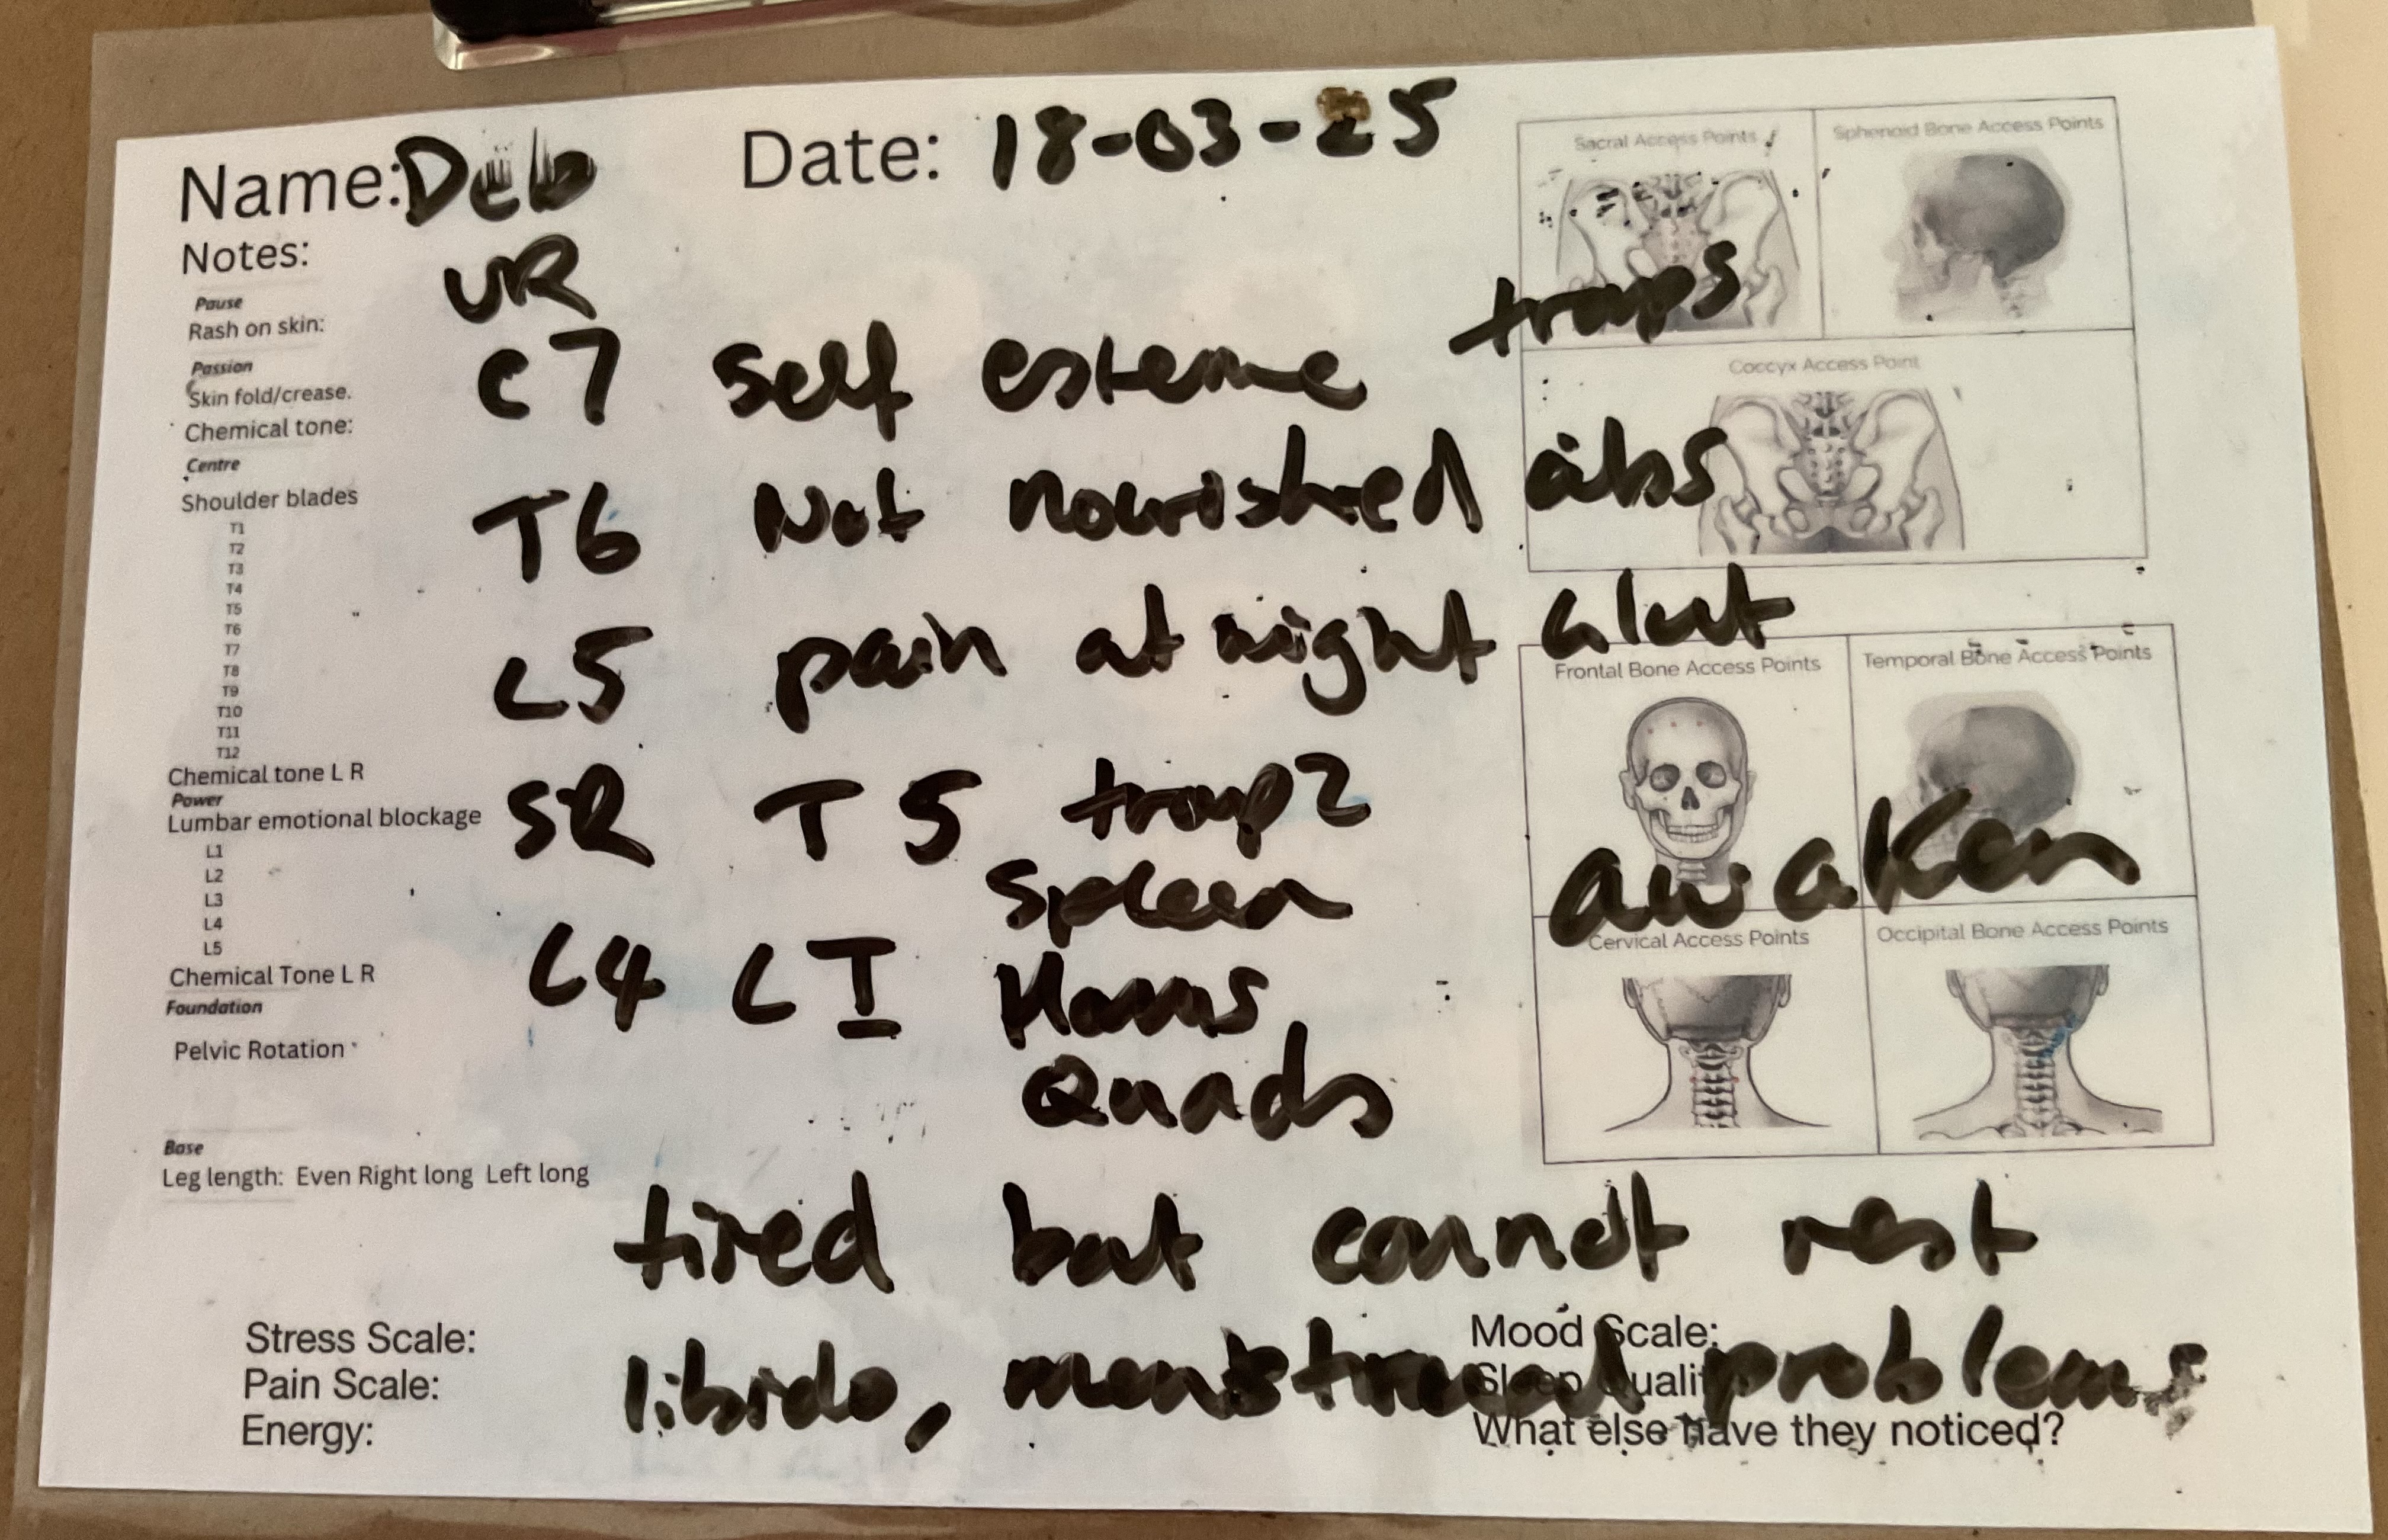 Name: Deb Date: 18-03-25
Notes:
UR
Pause
Rash on skin:
Passion
Skin fold/crease.
Chemical tone:
C7 self esteme traps
Centre
Shoulder blades
T6 Not nourished abs
T1
T2
T3
T4
T5
T6
T7
T8
T9
T10
T11
T12
L5 pain at night Glut
Chemical tone L R
Power
Lumbar emotional blockage
SR T5 trap2
Spleen
awaken
L1
L2
L3
L4
L5
L4 LI Hams
Quads
Chemical Tone L R
Foundation
Pelvic Rotation
Base
Leg length: Even Right long Left long
tired but cannot rest
libido, menstrual problems
Stress Scale:
Pain Scale:
Energy:
Mood Scale:
Sleep Quality
What else have they noticed?
Sacral Access Points
Sphenoid Bone Access Points
Coccyx Access Point
Frontal Bone Access Points
Temporal Bone Access Points
Cervical Access Points
Occipital Bone Access Points